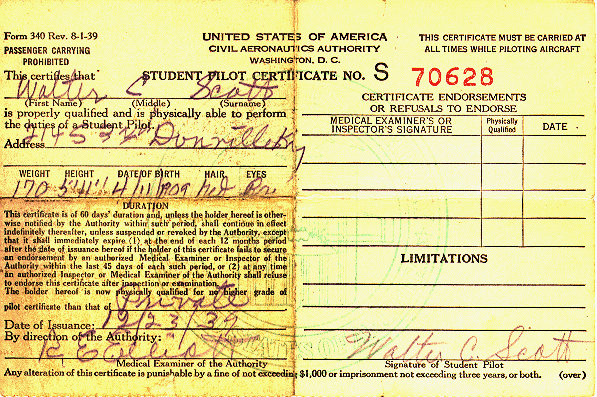 Form 340 Rev. 8-1-39
PASSENGER CARRYING
PROHIBITED
UNITED STATES OF AMERICA
CIVIL AERONAUTICS AUTHORITY
WASHINGTON, D. C.
THIS CERTIFICATE MUST BE CARRIED AT
ALL TIMES WHILE PILOTING AIRCRAFT
This certifies that
STUDENT PILOT CERTIFICATE NO. S 70628
Walter C Scott
(First Name) (Middle) (Surname)
is properly qualified and is physically able to perform
the duties of a Student Pilot.
Address
WEIGHT HEIGHT DATE OF BIRTH HAIR EYES
170 5'11" 4/11/1909 Red
DURATION
This certificate is of 60 days' duration and, unless the holder hereof is other-
wise notified by the Authority within such period, shall continue in effect
indefinitely thereafter, unless suspended or revoked by the Authority, except
that it shall immediately expire (1) at the end of each 12 months period
after the date of issuance hereof if the holder of this certificate fails to secure
an endorsement by an authorized Medical Examiner or Inspector of the
Authority within the last 45 days of each such period, or (2) at any time
an authorized Inspector or Medical Examiner of the Authority shall refuse
to endorse this certificate after inspection or examination.
The holder hereof is now physically qualified for no higher grade of
pilot certificate than that of Private
Date of Issuance: 12/23/39
By direction of the Authority:
R E Elliott
Medical Examiner of the Authority
CERTIFICATE ENDORSEMENTS
OR REFUSALS TO ENDORSE
MEDICAL EXAMINER'S OR
INSPECTOR'S SIGNATURE
Physically
Qualified
DATE
LIMITATIONS
Walter C. Scott
Signature of Student Pilot
Any alteration of this certificate is punishable by a fine of not exceeding $1,000 or imprisonment not exceeding three years, or both. (over)